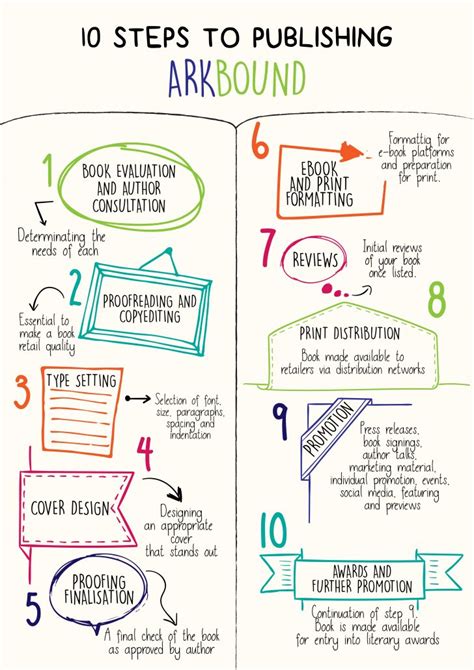 10 STEPS TO PUBLISHING
ARKBOUND
1
BOOK EVALUATION
AND AUTHOR
CONSULTATION
Determinating the
needs of each
2
PROOFREADING AND
COPYEDITING
Essential to
make a book
retail quality
3
TYPE SETTING
Selection of font,
size, paragraphs,
spacing and
indentation
4
COVER DESIGN
Designing
an appropriate
cover
that stands out
5
PROOFING
FINALISATION
A final check of the book
as approved by author
6
EBOOK
AND PRINT
FORMATTING
Formattig for
e-book platforms
and preparation
for print.
7
REVIEWS
Initial reviews
of your book
once listed.
8
PRINT DISTRIBUTION
Book made available to
retailers via distribution networks
9
PROMOTION
Press releases,
book signings,
author talks,
marketing material,
individual promotion, events,
social media, featuring
and previews
10
AWARDS AND
FURTHER PROMOTION
Continuation of step 9.
Book is made available
for entry into literary awards